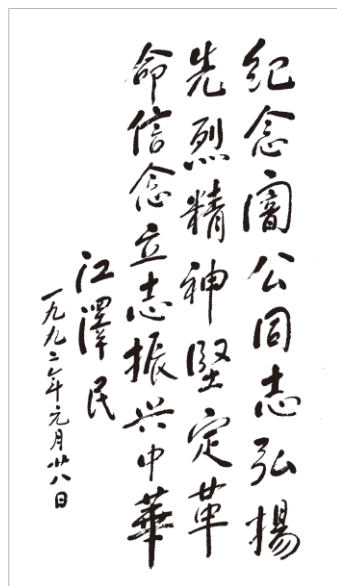 纪念闇公同志弘揚
先烈精神堅定革
命信念立志振兴中華
江澤民
一九九二年元月廿八日